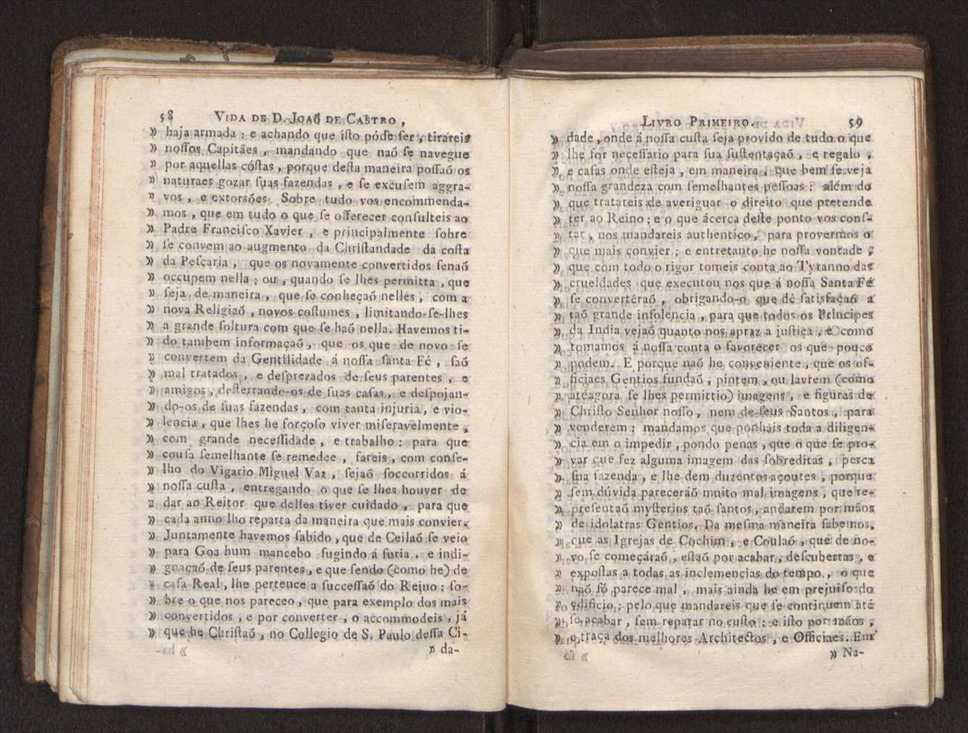 58 VIDA DE D. JOAÕ DE CASTRO,
» haja armada ; e achando que iſto póde ſer, tirareis
» noſſos Capitães, mandando que naõ ſe navegue
» por aquellas cóſtas, porque deſta maneira poſſaõ os
» naturaes gozar ſuas fazendas, e ſe excuſem aggra-
» vos, e extorsões. Sobre tudo vos encommenda-
» mos, que em tudo o que ſe offerecer conſulteis ao
» Padre Franciſco Xavier, e principalmente ſobre
» ſe convem ao augmento da Chriſtandade da coſta
» da Peſcaria, que os novamente convertidos ſenaõ
» occupem nella ; ou, quando ſe lhes permitta, que
» ſeja de maneira, que ſe conheçaõ nelles, com a
» nova Religiaõ, novos coſtumes, limitando-ſe-lhes
» a grande ſoltura com que ſe haõ nella. Havemos ti-
» do tambem informaçaõ, que os que de novo ſe
» convertem da Gentilidade á noſſa ſanta Fé, ſaõ
» mal tratados, e deſprezados de ſeus parentes, e
» amigos, deſterrando-os de ſuas caſas, e deſpojan-
» do-os de ſuas fazendas, com tanta injuria, e vio-
» lencia, que lhes he forçoſo viver miſeravelmente,
» com grande neceſſidade, e trabalho : para que
» couſa ſemelhante ſe remedee, fareis, com conſe-
» lho do Vigario Miguel Vaz, ſejaõ ſoccorridos á
» noſſa cuſta, entregando o que ſe lhes houver de
» dar ao Reitor que delles tiver cuidado, para que
» cada anno lho reparta da maneira que mais convier.
» Juntamente havemos ſabido, que de Ceilaõ ſe veio
» para Goa hum mancebo fugindo á furia, e indi-
» gnaçaõ de ſeus parentes, e que ſendo (como he) de
» caſa Real, lhe pertence a ſucceſſaõ do Reino : ſo-
» bre o que nos pareceo, que para exemplo dos mais
» convertidos, e por converter, o accommodeis, já
» que he Chriſtaõ, no Collegio de S. Paulo deſſa Ci-
» da-
LIVRO PRIMEIRO. 59
» dade, onde á noſſa cuſta ſeja provido de tudo o que
» lhe for neceſſario para ſua ſuſtentaçaõ, e regalo,
» e caſas onde eſteja, em maneira, que bem ſe veja
» noſſa grandeza com ſemelhantes peſſoas : além do
» que tratareis de averiguar o direito que pretende
» ter ao Reino ; e o que ácerca deſte ponto vos conſ-
» tar, nos mandareis authentico, para provermos o
» que mais convier ; e entretanto he noſſa vontade,
» que com todo o rigor tomeis conta ao Tyranno das
» crueldades que executou nos que á noſſa Santa Fé
» ſe convertêraõ, obrigando-o que dê ſatisfaçaõ a
» taõ grande inſolencia, para que todos os Principes
» da India vejaõ quanto nos apraz a juſtiça, e como
» tomamos á noſſa conta o favorecer os que pouco
» podem. E porque naõ he conveniente, que os of-
» ficiaes Gentios fundaõ, pintem, ou lavrem (como
» atéagora ſe lhes permittio) imagens, e figuras de
» Chriſto Senhor noſſo, nem de ſeus Santos, para
» venderem ; mandamos que ponhais toda a diligen-
» cia em o impedir, pondo penas, que o que ſe pro-
» var que fez alguma imagem das ſobreditas, perca
» ſua fazenda, e lhe dem duzentos açoutes, porque
» ſem dúvida pareceráõ muito mal imagens, que re-
» preſentaõ myſterios taõ ſantos, andarem por mãos
» de idolatras Gentios. Da meſma maneira ſabemos,
» que as Igrejas de Cochim, e Coulaõ, que de no-
» vo ſe começáraõ, eſtaõ por acabar, deſcubertas, e
» expoſtas a todas as inclemencias do tempo, o que
» naõ ſó parece mal, mais ainda he em prejuiſo do
» edificio ; pelo que mandareis que ſe continuem até
» ſe acabar, ſem reparar no cuſto : e iſto por mãos,
» e traça dos melhores Architectos, e Officiaes. Em
» Na-